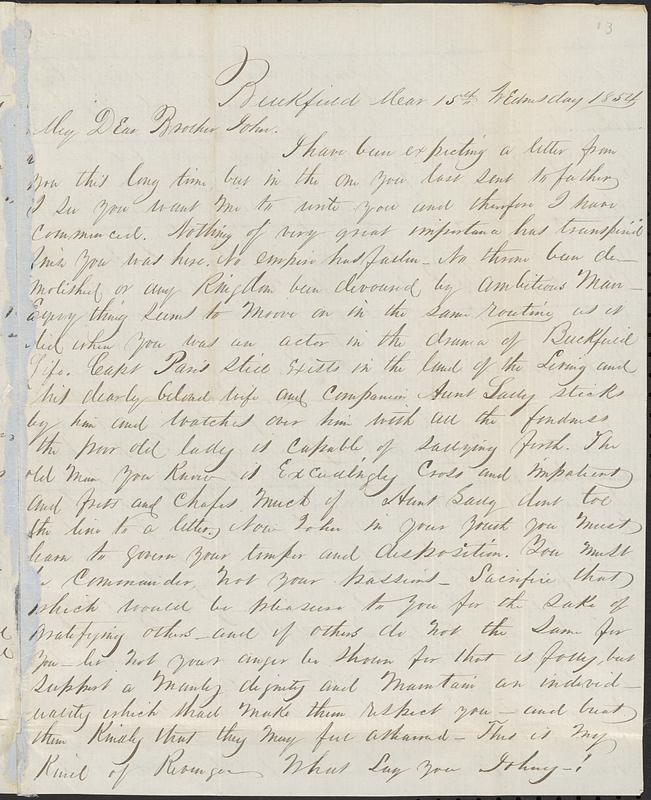 13
Buckfield Mar 15th Wednesday 1854
My Dear Brother John.
I have been expecting a letter from
you this long time, but in the one you last sent to father
I see you want me to write you and therefore I have
commenced. Nothing of very great importance has transpired
since you was here. No empire has fallen - No throne been de-
molished or any Kingdom been devoured by ambitious Man -
Every thing seems to moove on in the same routine as it
did when you was an actor in the drama of Buckfield
Life. Capt Paris still exists in the land of the Living and
his dearly beloved wife and companion Aunt Sally sticks
by him and watches over him with all the fondness
the poor old lady is capable of sallying forth. The
old Man you know is Exceedingly Cross and impatient
and frets and chafes much if Aunt Sally dont toe
the line to a letter, Now John in your youth you must
learn to govern your temper and disposition. You must
be Commander, not your passions - Sacrifice that
which would be pleasure to you for the sake of
gratifying others - and if others do not the same for
you - let not your anger be shown for that is folly, but
support a Manly dignity and Maintain an individ-
uality which shall make them respect you - and treat
them Kindly that they may feel ashamed - This is my
Kind of Revenge What Say You Johny - !